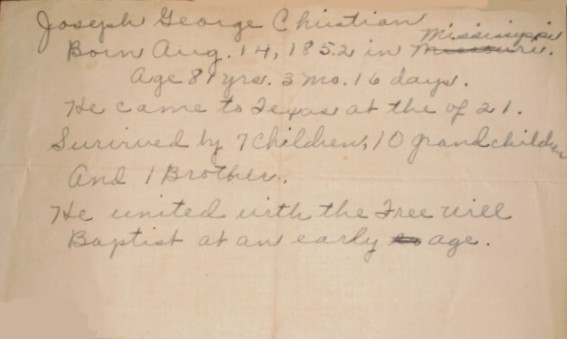 Joseph George Christian
Born Aug. 14, 1852 in Mississippi Missouri.
Age 81 yrs. 3 mo. 16 days.
He came to Texas at the of 21.
Survived by 7 Children, 10 grandchildren
And 1 Brother.
He united with the Free Will
Baptist at an early age.